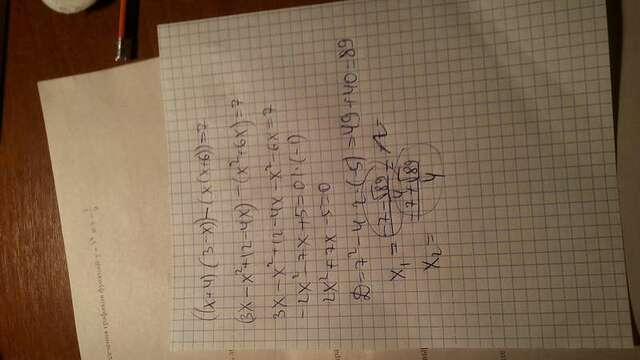 графиков функций y =
((x+4)(3-x))-(x(x+6))=7
(3x-x²+12-4x)-(x²+6x)=7
3x-x²+12-4x-x²-6x=7
-2x²-7x+5=0 | · (-1)
2x²+7x-5=0
D=7²-4·2·(-5)=49+40=89
x₁ = (-7-√89)/4 =
x₂ = (-7+√89)/4